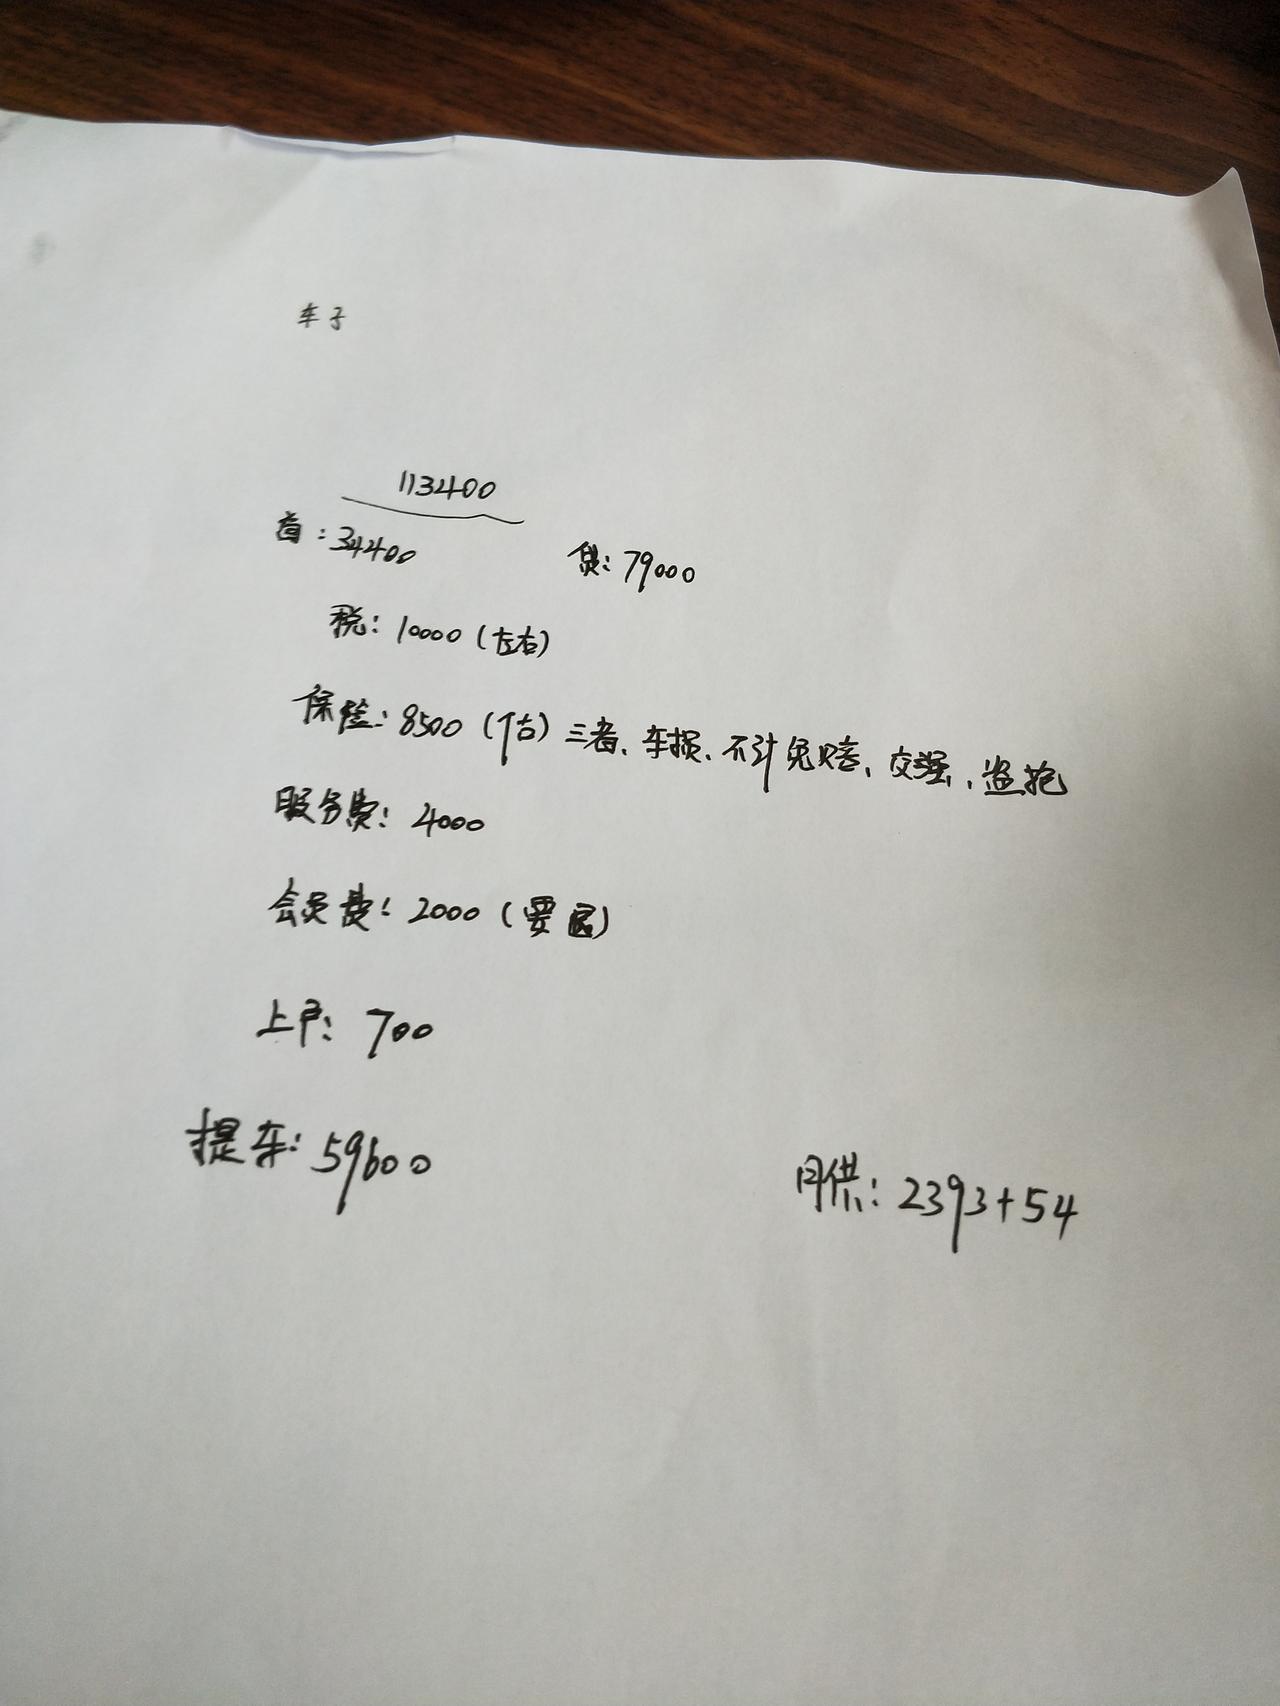 车子
113400
首：34400 贷：79000
税：10000（左右）
保险：8500（估）三者、车损、不计免赔、交强、盗抢
服务费：4000
会员费：2000（要退）
上户：700
提车：59600
月供：2393+54